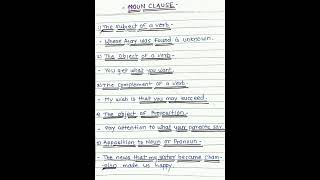 - NOUN CLAUSE -
1) The subject of a verb -
- Where Azar was found is unknown.
2) The Object of a verb -
- You get what you want.
3) The complement of a verb -
- My wish is that you may succeed.
4) The object of Preposition -
- Pay attention to what your parents say.
5) Apposition to Noun or Pronoun -
- The news that my sister became Cham-
pion made us happy.